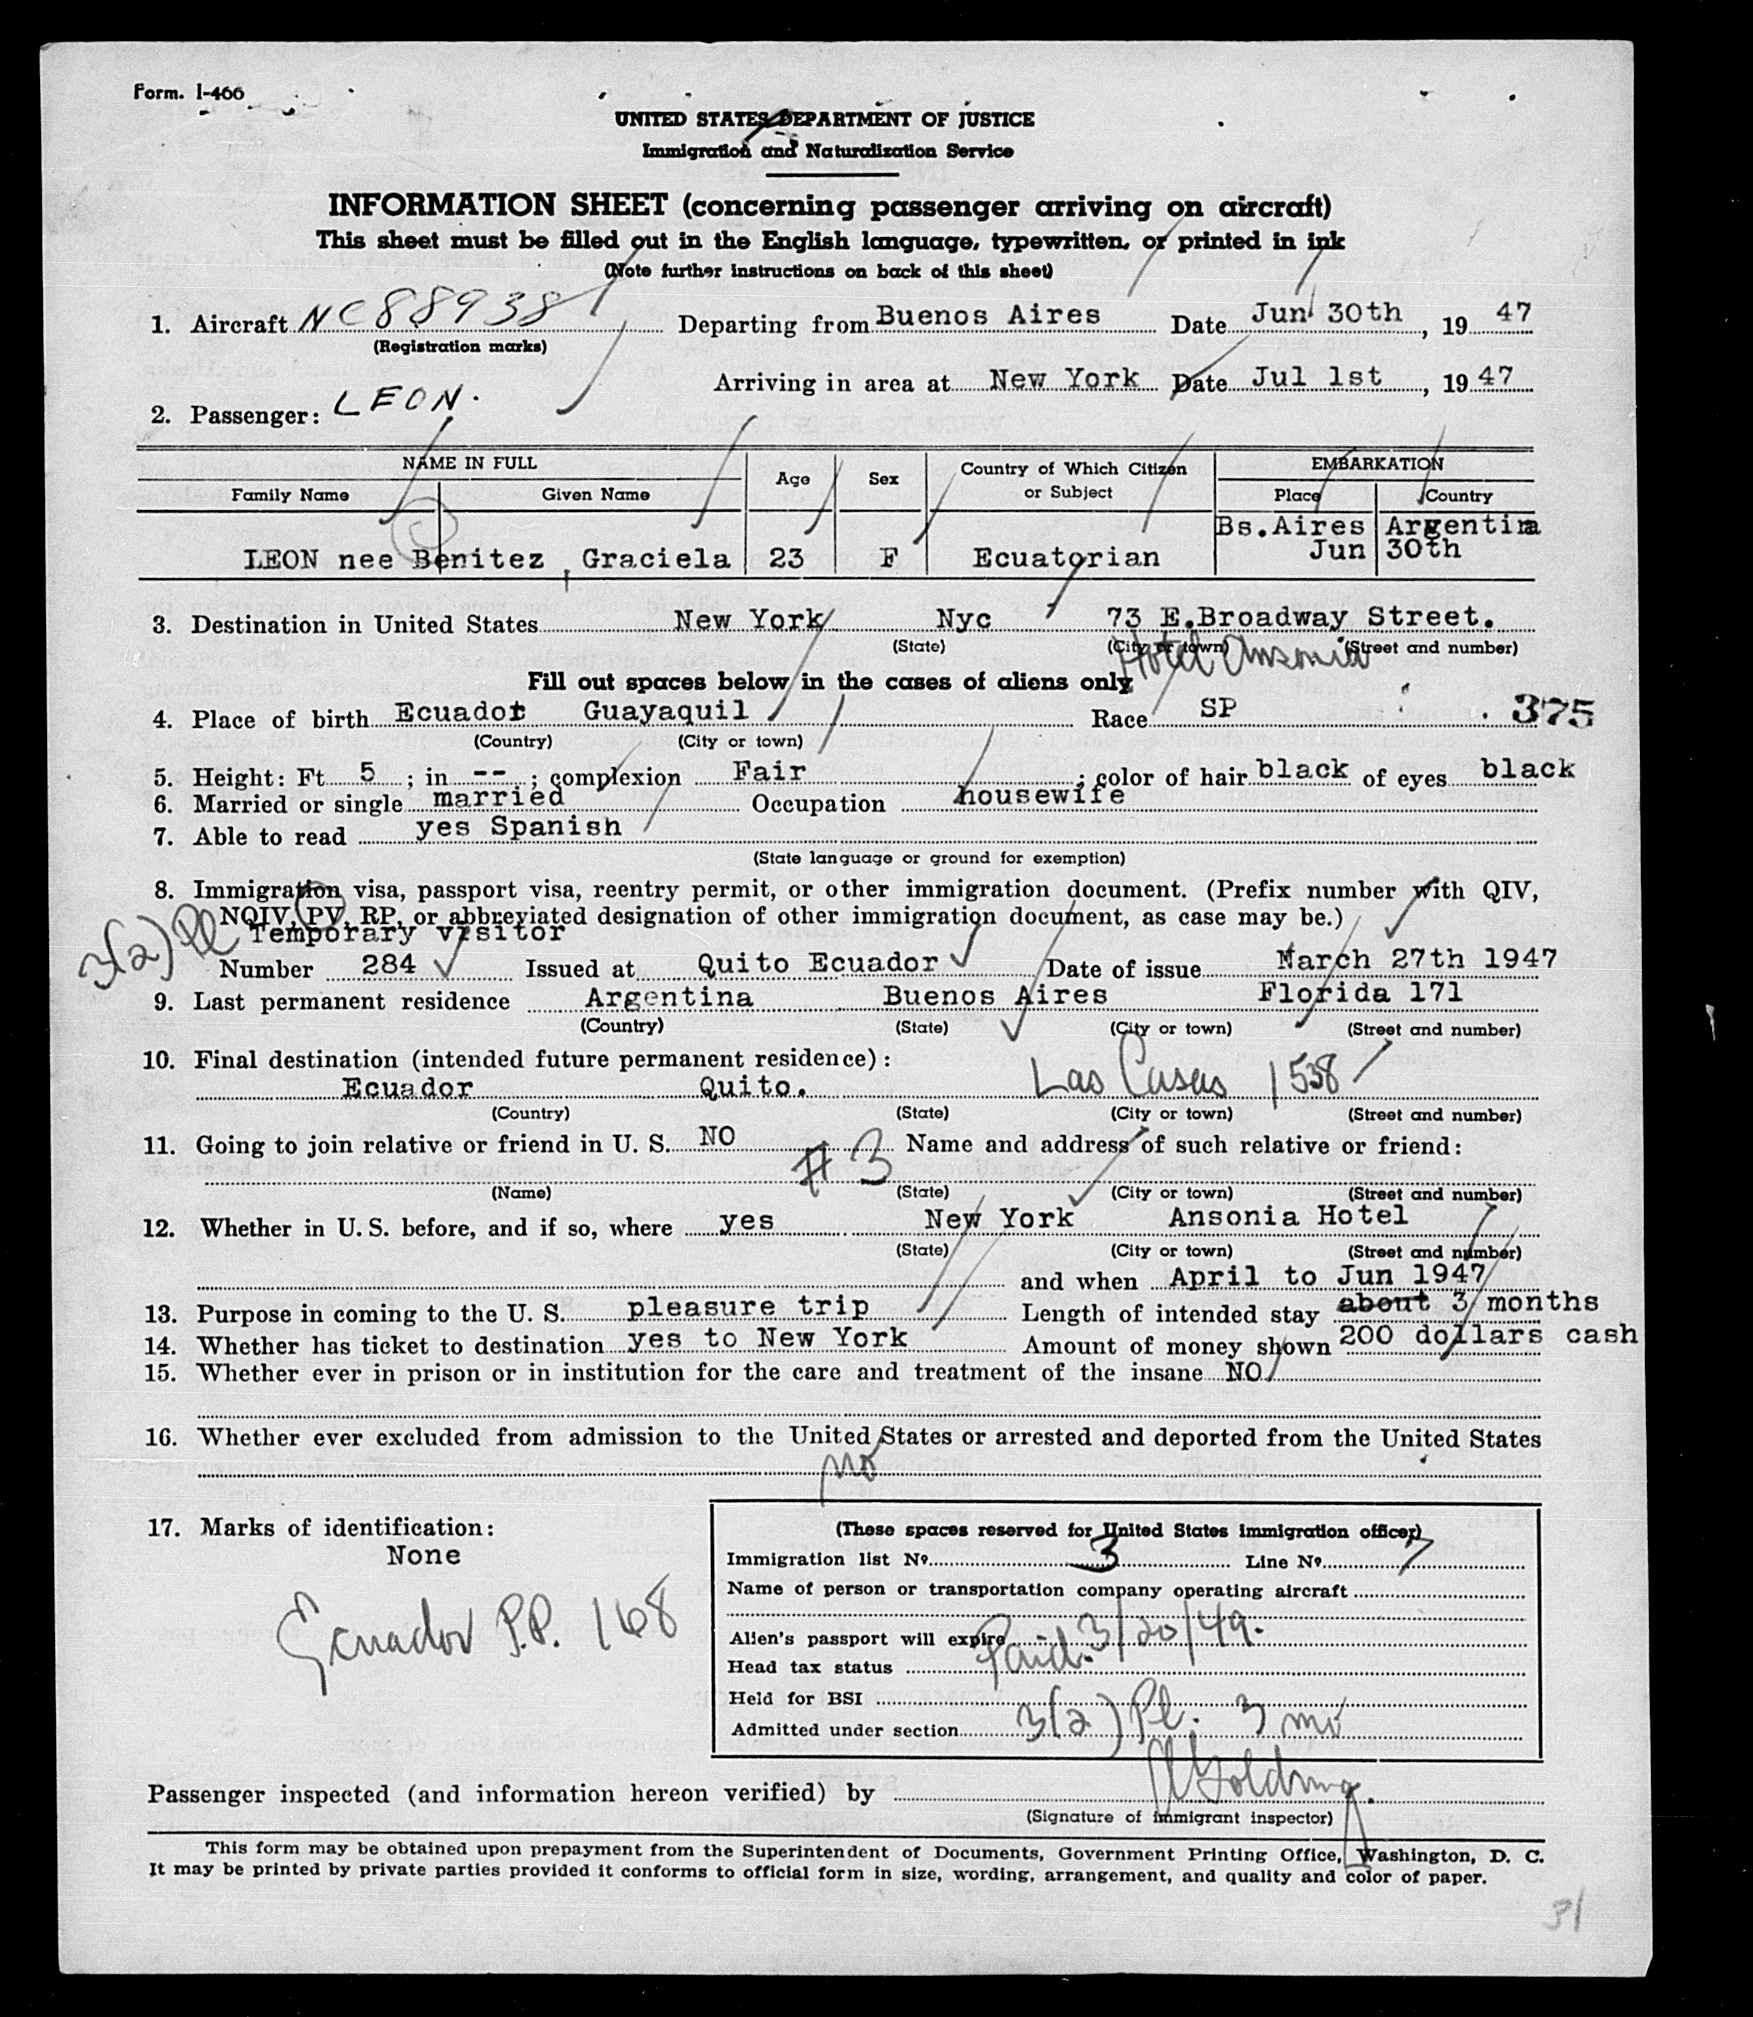 Form. I-466
UNITED STATES DEPARTMENT OF JUSTICE
Immigration and Naturalization Service
INFORMATION SHEET (concerning passenger arriving on aircraft)
This sheet must be filled out in the English language, typewritten, or printed in ink
(Note further instructions on back of this sheet)
1. Aircraft NC88938 Departing from Buenos Aires Date Jun 30th, 19 47
(Registration marks)
Arriving in area at New York Date Jul 1st, 19 47
2. Passenger: LEON.
NAME IN FULL Age Sex Country of Which Citizen or Subject EMBARKATION
Family Name Given Name Place Country
Bs.Aires Argentina
LEON nee Benitez, Graciela 23 F Ecuatorian Jun 30th
3. Destination in United States New York Nyc 73 E.Broadway Street.
(State) (City or town) (Street and number)
Hotel Ansonia
Fill out spaces below in the cases of aliens only
4. Place of birth Ecuador Guayaquil Race SP 375
(Country) (City or town)
5. Height: Ft 5 ; in -- ; complexion Fair ; color of hair black of eyes black
6. Married or single married Occupation housewife
7. Able to read yes Spanish
(State language or ground for exemption)
8. Immigration visa, passport visa, reentry permit, or other immigration document. (Prefix number with QIV,
NQIV, PV, RP, or abbreviated designation of other immigration document, as case may be.)
3(2) Pl Temporary visitor
Number 284 Issued at Quito Ecuador Date of issue March 27th 1947
9. Last permanent residence Argentina Buenos Aires Florida 171
(Country) (State) (City or town) (Street and number)
10. Final destination (intended future permanent residence):
Ecuador Quito. Las Casas 1538
(Country) (State) (City or town) (Street and number)
11. Going to join relative or friend in U. S. NO Name and address of such relative or friend:
# 3
(Name) (State) (City or town) (Street and number)
12. Whether in U. S. before, and if so, where yes New York Ansonia Hotel
(State) (City or town) (Street and number)
and when April to Jun 1947
13. Purpose in coming to the U. S. pleasure trip Length of intended stay about 3 months
14. Whether has ticket to destination yes to New York Amount of money shown 200 dollars cash
15. Whether ever in prison or in institution for the care and treatment of the insane NO
16. Whether ever excluded from admission to the United States or arrested and deported from the United States
no
17. Marks of identification:
None
Ecuador P.P. 168
(These spaces reserved for United States immigration officer)
Immigration list No. 3 Line No. 7
Name of person or transportation company operating aircraft
Alien's passport will expire 3/20/49.
Head tax status Paid.
Held for BSI
Admitted under section 3(2) Pl. 3 mo
Passenger inspected (and information hereon verified) by
(Signature of immigrant inspector)
This form may be obtained upon prepayment from the Superintendent of Documents, Government Printing Office, Washington, D. C.
It may be printed by private parties provided it conforms to official form in size, wording, arrangement, and quality and color of paper.
31